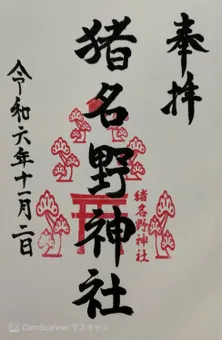 奉拝
猪名野神社
猪名野神社
令和六年十一月二日
CamScanner でスキャン